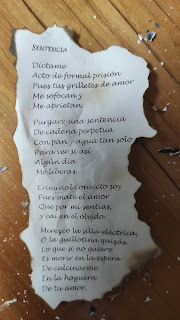 SENTENCIA
Díctame
Acto de formal prisión
Pues tus grilletes de amor
Me sofocan y
Me aprietan,
Purgare una sentencia
De cadena perpetua
Con pan y agua tan solo
Para ver si así
Algún día
Me liberas.
Criminal convicto soy
Pues mate el amor
Que por mi sentías,
y caí en el olvido.
Merezco la silla eléctrica,
O la guillotina quizás,
Lo que si no quiero
Es morir en la espera
De calcinarme
En la hoguera
De tu amor.